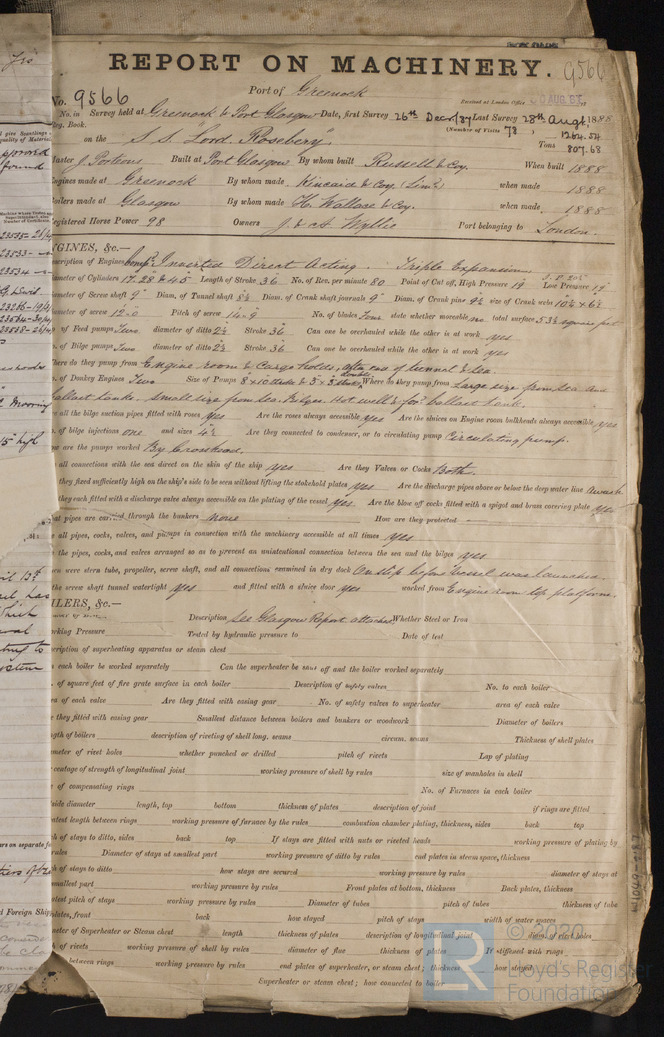 REPORT ON MACHINERY. 9566
Port of Greenock
No. 9566
Received at London Office
No. in Survey held at Greenock & Port Glasgow Date, first Survey 26th Decr/87 Last Survey 28th Augt 1888
Reg. Book.
(Number of Visits 78)
on the S.S. "Lord Rosebery" Tons 1264.54
807.68
Master J. Built at Port Glasgow By whom built Russell & Coy. When built 1888
Engines made at Greenock By whom made Kincaid & Coy (Limd) when made 1888
Boilers made at Glasgow By whom made H. Wallace & Coy. when made 1888
Registered Horse Power 98 Owners J. & A. Wyllie Port belonging to London.
ENGINES, &c.—
Description of Engines Inverted Direct Acting. Triple Expansion
Diameter of Cylinders 17. 28 & 45 Length of Stroke 36 No. of Rev. per minute 80 Point of Cut off, High Pressure 19 Low Pressure 19
Diameter of Screw shaft 9" Diam. of Tunnel shaft 8½ Diam. of Crank shaft journals 9" Diam. of Crank pin 9½ size of Crank webs 10½ x 6½
Diameter of screw 12-0 Pitch of screw 14-9 No. of blades Four state whether moveable no total surface 53½ square feet
No. of Feed pumps Two diameter of ditto 2½ Stroke 36 Can one be overhauled while the other is at work yes
No. of Bilge pumps Two diameter of ditto 2½ Stroke 36 Can one be overhauled while the other is at work yes
Where do they pump from Engine room & Cargo holds, after end of tunnel & sea
No. of Donkey Engines Two Size of Pumps Where do they pump from Large size from sea and
ballast tanks. Small size from sea. Bilges. Hot well & ballast tank.
Are all the bilge suction pipes fitted with roses yes Are the roses always accessible yes Are the sluices on Engine room bulkheads always accessible yes
No. of bilge injections one and sizes 4½ Are they connected to condenser, or to circulating pump Circulating pump.
How are the pumps worked By Crosshead.
Are all connections with the sea direct on the skin of the ship yes Are they Valves or Cocks Both.
Are they fixed sufficiently high on the ship's side to be seen without lifting the stokehold plates yes Are the discharge pipes above or below the deep water line Awash
Are they each fitted with a discharge valve always accessible on the plating of the vessel yes Are the blow off cocks fitted with a spigot and brass covering plate yes
What pipes are carried through the bunkers None How are they protected —
Are all pipes, cocks, valves, and pumps in connection with the machinery accessible at all times yes
Are the pipes, cocks, and valves arranged so as to prevent an unintentional connection between the sea and the bilges yes
When were stern tube, propeller, screw shaft, and all connections examined in dry dock On slip before vessel was launched.
Is the screw shaft tunnel watertight yes and fitted with a sluice door yes worked from Engine room top platform.
BOILERS, &c.—
Description See Glasgow Report attached Whether Steel or Iron
Working Pressure Tested by hydraulic pressure to Date of test
Description of superheating apparatus or steam chest
Can each boiler be worked separately Can the superheater be shut off and the boiler worked separately
No. of square feet of fire grate surface in each boiler Description of safety valves No. to each boiler
Area of each valve Are they fitted with easing gear No. of safety valves to superheater area of each valve
Are they fitted with easing gear Smallest distance between boilers and bunkers or woodwork Diameter of boilers
Length of boilers description of riveting of shell long. seams circum. seams Thickness of shell plates
Diameter of rivet holes whether punched or drilled pitch of rivets Lap of plating
Percentage of strength of longitudinal joint working pressure of shell by rules size of manholes in shell
Size of compensating rings No. of Furnaces in each boiler
Outside diameter length, top bottom thickness of plates description of joint if rings are fitted
Greatest length between rings working pressure of furnace by the rules combustion chamber plating, thickness, sides back top
Pitch of stays to ditto, sides back top If stays are fitted with nuts or riveted heads working pressure of plating by
rules Diameter of stays at smallest part working pressure of ditto by rules end plates in steam space, thickness
Pitch of stays to ditto how stays are secured working pressure by rules diameter of stays at
smallest part working pressure by rules Front plates at bottom, thickness Back plates, thickness
Greatest pitch of stays working pressure by rules Diameter of tubes pitch of tubes thickness of tube
plates, front back how stayed pitch of stays width of water spaces
Diameter of Superheater or Steam chest length thickness of plates description of longitudinal joint diam. of rivet holes
Pitch of rivets working pressure of shell by rules diameter of flue thickness of plates If stiffened with rings
Distance between rings working pressure by rules end plates of superheater, or steam chest; thickness how stayed
Superheater or steam chest; how connected to boiler
LR © 2020
Lloyd's Register
Foundation